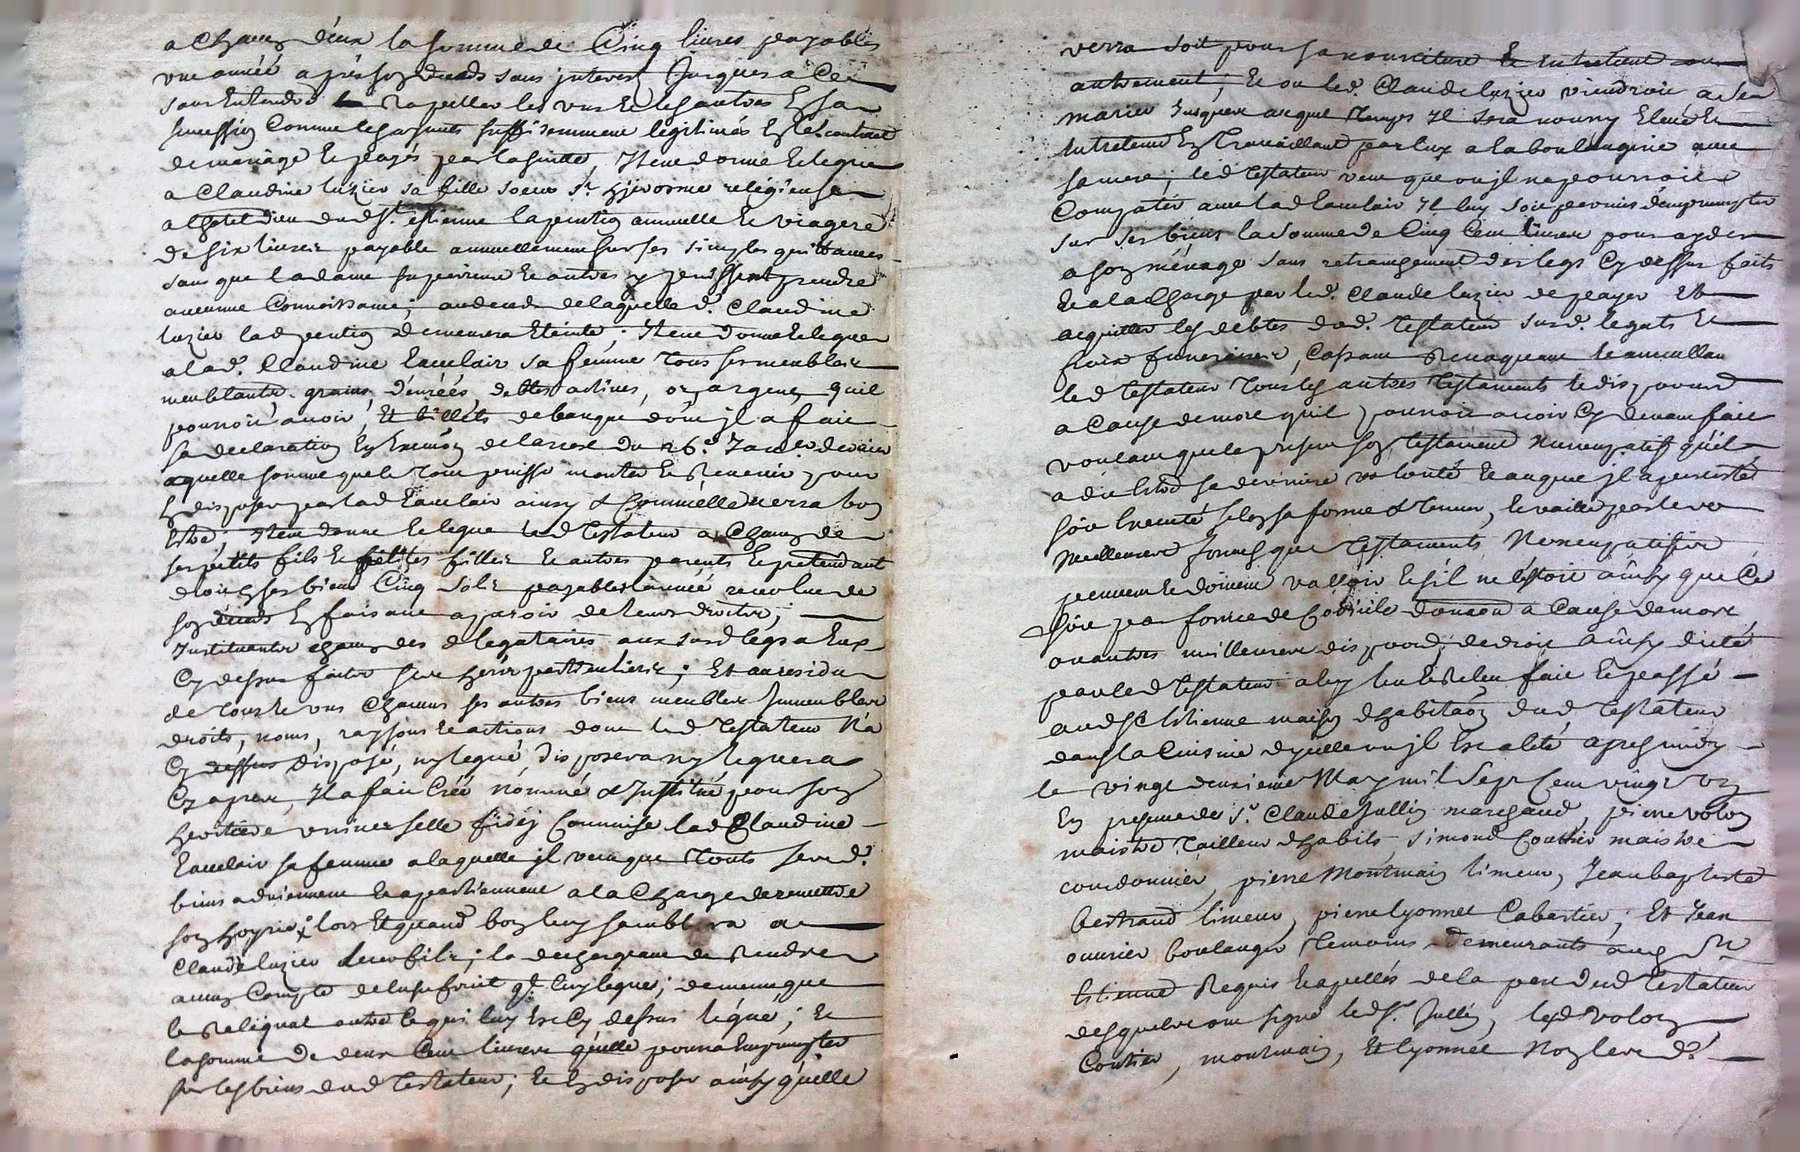 a chacun d'eux la somme de Cinq livres payables
une année aprés son deceds sans interest Jusques a Ce
sans Entendre rapeller les uns et les autres En sa
succession Comme les ayants suffisemment legitimés En contract
de mariage et payés par la suitte, Item donne et legue
a Claudine luzier sa fille soeur religieuse
a lhotel dieu dud St. estienne la pention annuelle et viagere
de six livres payable annuellement sur ses simples quittances
sans que la dame superieure et autres y puissent prendre
aucunne Connoissance; au deceds de laquelle d. Claudine
luzier lad pention demeurera Eteinte. Item donne et legue
a lad. Claudine sa femme tous ses meubles
meublants, grains, denrées, debtes actives, or, argent quil
pourroit avoir, Et billets de banque dont jl a fait
sa declaration En de larrest du 26e. dernier
a quelle somme que le tout puisse monter et Revenir pour
En disposer par lad ainsy & Comme elle verra bon
Estre. Item donne et legue led testateur a Chacun de
ses petits fils et petites filles et autres parents et pretendant
droit En ses biens Cinq sols payables année revolue de
son deceds En faisant aparoir de leurs droits;
Instituants chacun des d legataires aux susd legs a Eux
Cy dessus faits ses heirs particuliers; Et au residu
de tous et uns Chacuns ses autres biens meubles Immeubles
droits, noms, raysons et actions dont led testateur n'a
Cy dessus disposé, ny legué, disposera ny leguera
Cy apres, Il a fait Créé nommé & Institué pour son
heritiere universelle fidej Commise lad Claudine
sa femme a laquelle jl veut que touts sesd.
biens adviennent et apartiennent a la Charge de remettre
son hoyrie lors Et quand bon luy semblera a
Claude luzier leur fils; la dechargeant de Rendre
aucun Compte de lusufruit qt. luy legue; de meme que
le Reliquat outre ce qui luy Est Cy dessus legué; Et
la somme de deux Cent livres qu'elle pourra Emprunter
sur les biens dud testateur; et En disposer ainsy qu'elle
verra soit pour sa nourriture et entretient ou
autrement; Et ou led. Claude luzier viendroit a se
marier Jusques auquel temps Il sera nourry Elevé et
Entretenu En travaillant par luy a la boulangerie avec
sa mere; led testateur veut que ou jl ne pourroit
Compatir avec lad Il luy soit permis d'emprunter
sur ses biens la somme de Cinq Cent livres pour ayder
a son ménage sans retranchement des legs Cy dessus faits
et a la Charge par led. Claude luzier de payer et
acquitter les debtes dud. testateur susd. legats et
fraix funeraires, Cassant Revoquant et annullant
led testateur tous les autres testaments et dispositions
a Cause de mort qu'il pourroit avoir Cy devant fait
voulant que le present son testament nuncupatif qu'il
a dit Estre sa derniere volonté et auquel jl a persisté
soit Executé selon sa forme & teneur, et vaille par les
meilleures formes que testaments Noncupatifs
peuvent et doivent valloir Et s'il ne valloit ainsy que Ce
soit par forme de Codicile donation a Cause de mort
ou autres meilleures dispond. de droit ainsy dicté
par led testateur a luy leu Et releu fait et passé
aud St Estienne maison d'habitaon dud testateur
dans la Cuisine dycelle ou jl Est alité apres midy
le vingt deuxieme May mil sept Cent vingt un
En presence de sr. Claude Jullin marchand, pierre volon
maistre tailleur dhabits, simond Couttier maistre
cordonnier, pierre Montmain limeur, Jean baptiste
bertrand limeur, pierre lyonnet Cabartier; Et Jean
ouvrier boulanger temoins demeurants aud St
Estienne Requis Et apellés de la part dud testateur
desquels ont signé led sr. Jullin, lesd volon
Couttier, montmain, Et lyonnet Non lesd.